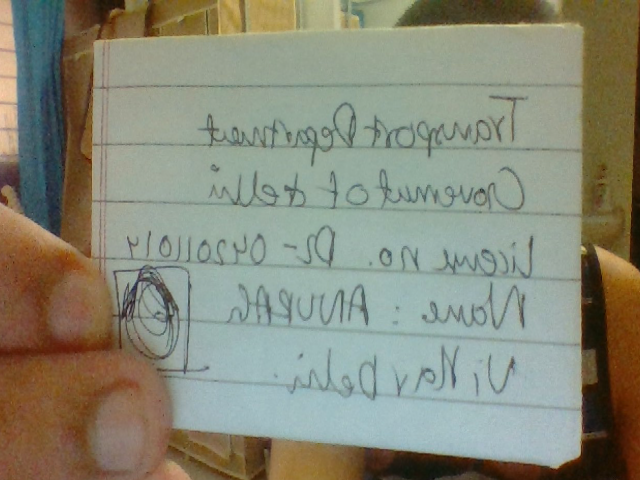 Transport Department
Governut of delhi
License no. DL-042011014
Name : ANURAG
Delhi